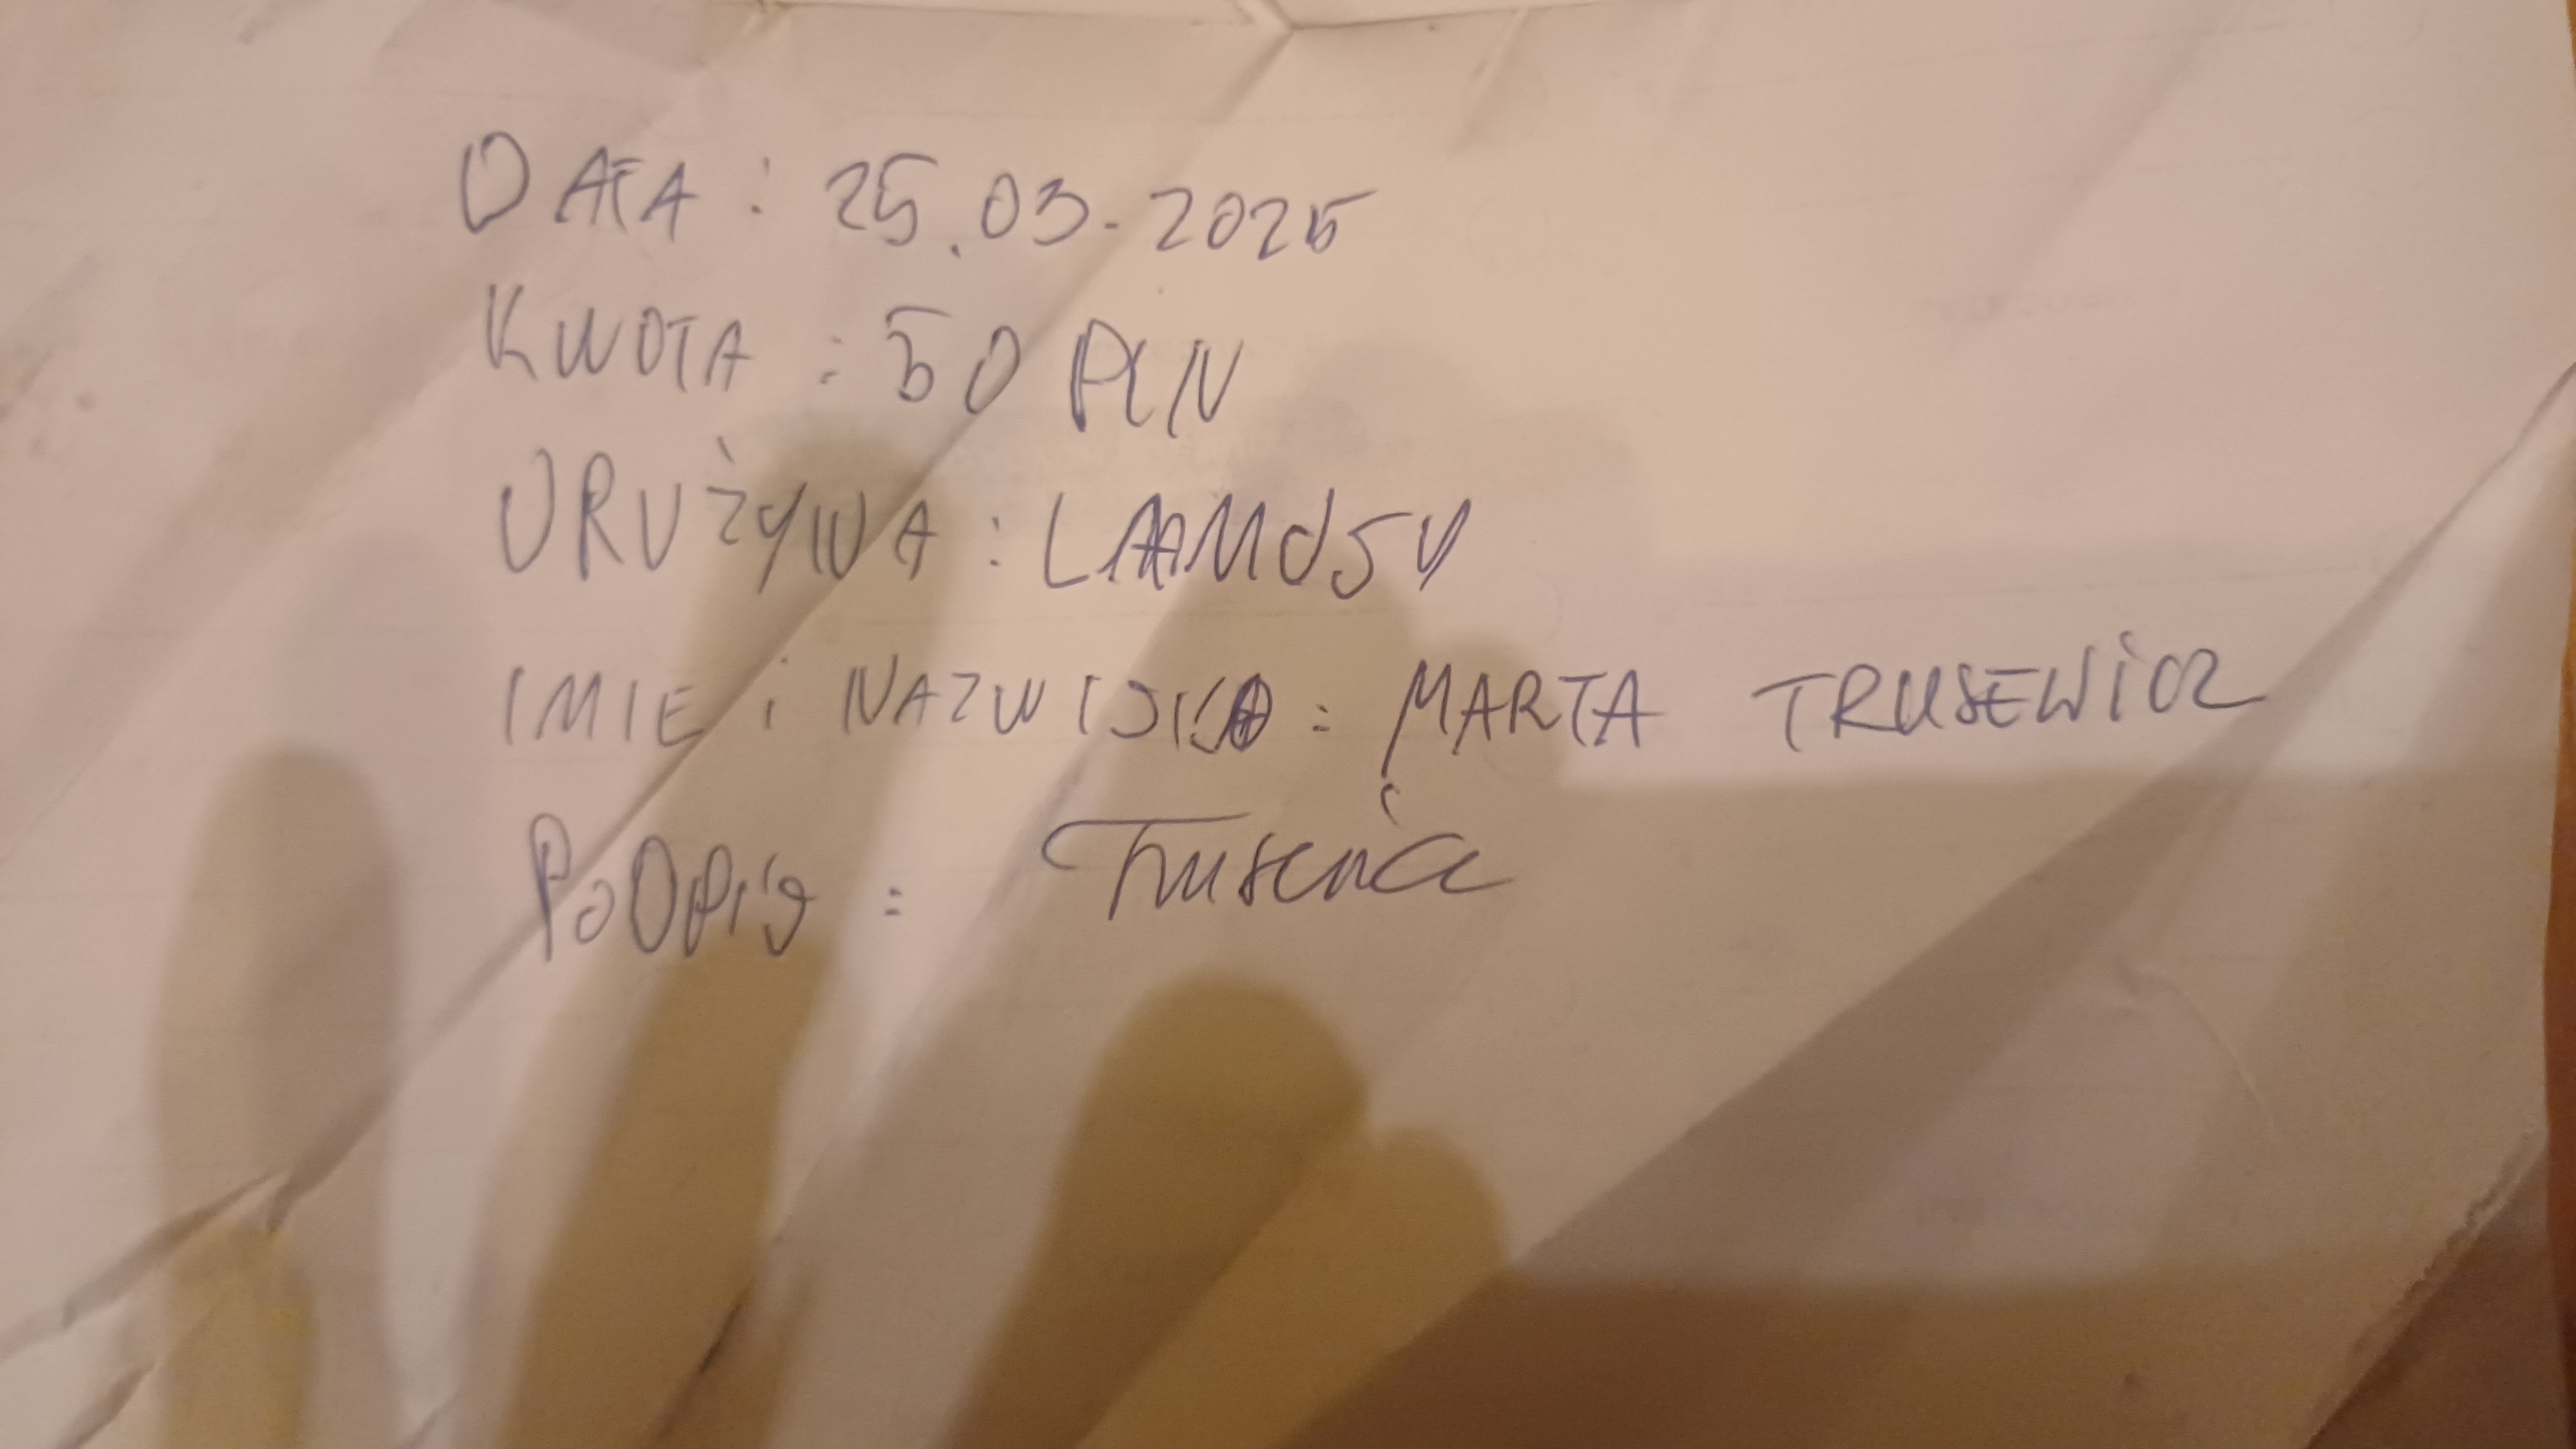 DATA : 25.03.2025
KWOTA : 50 PLN
DRUŻYNA :
IMIE i NAZWISKO : MARTA TRUSEWICZ
PODPIS :